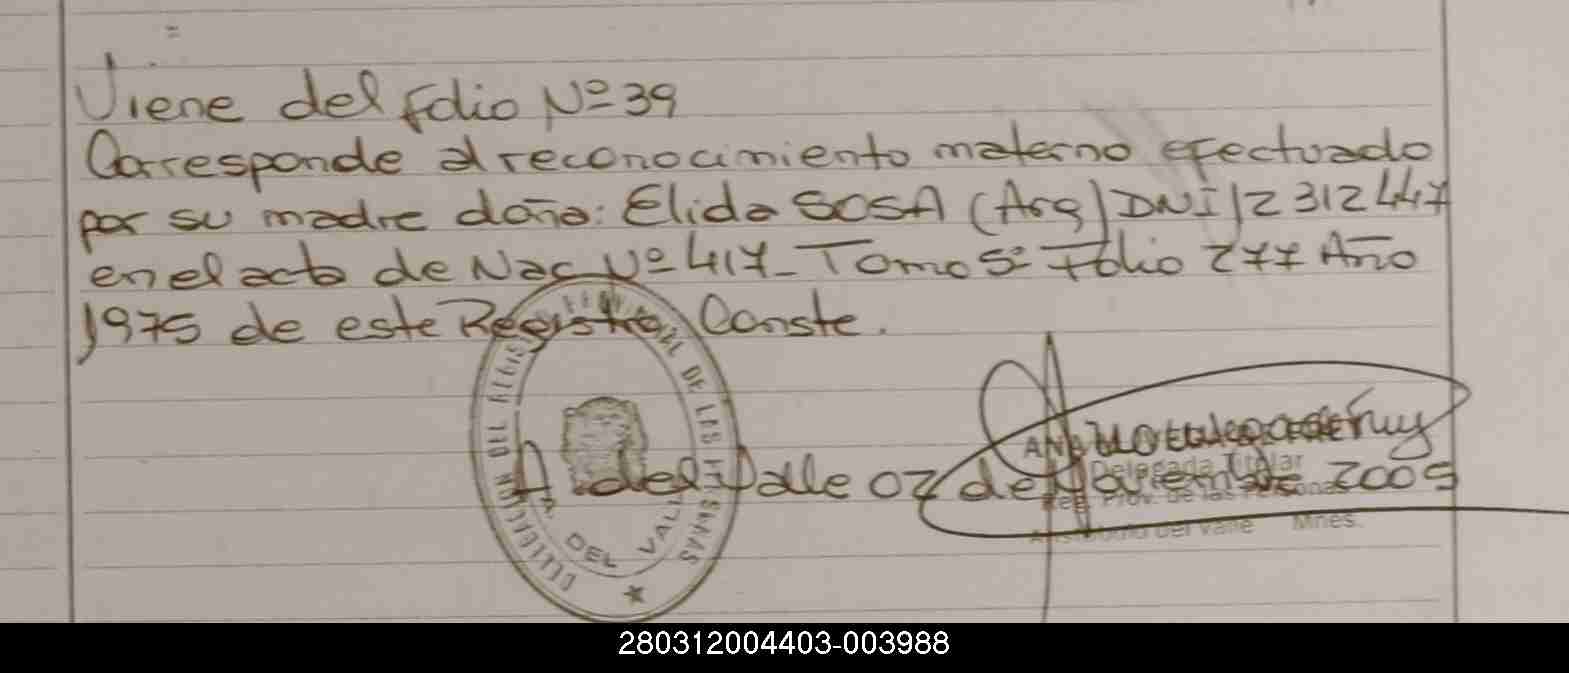 Viene del folio Nº 39
Corresponde al reconocimiento materno efectuado
por su madre doña: Elida SOSA (Arg) DNI 12312447
en el acta de Nac Nº 417_ Tomo 5º Folio 277 Año
1975 de este Registro Conste.
A. del Valle 02 de Noviembre 2005
Delegada Titular
Reg. Prov. de las Personas
Aristóbulo del Valle Mnes.
DEL REGISTRO PROVINCIAL DE LAS PERSONAS
A. DEL VALLE
280312004403-003988